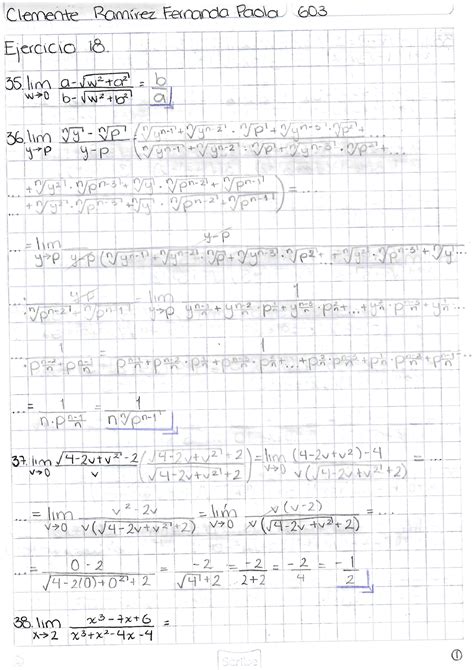 Clemente Ramírez Fernanda Paola 603
Ejercicio 18.
35. lim w→0 (a-√(w²+a²))/(b-√(w²+b²)) = b/a
36. lim y→p (ⁿ√y - ⁿ√p)/(y-p) ((ⁿ√yⁿ⁻¹ + ⁿ√yⁿ⁻² · ⁿ√p + ⁿ√yⁿ⁻³ · ⁿ√p² + ...)/(ⁿ√yⁿ⁻¹ + ⁿ√yⁿ⁻² · ⁿ√p + ⁿ√yⁿ⁻³ · ⁿ√p² + ...
... (+ ⁿ√y² · ⁿ√pⁿ⁻³ + ⁿ√y · ⁿ√pⁿ⁻² + ⁿ√pⁿ⁻¹)/(+ ⁿ√y² · ⁿ√pⁿ⁻³ + ⁿ√y · ⁿ√pⁿ⁻² + ⁿ√pⁿ⁻¹)) = ...
... = lim y→p (y-p)/(y-p (ⁿ√yⁿ⁻¹ + ⁿ√yⁿ⁻² · ⁿ√p + ⁿ√yⁿ⁻³ · ⁿ√p² + ... + ⁿ√y² · ⁿ√pⁿ⁻³ + ⁿ√y ...
... · ⁿ√pⁿ⁻² · ⁿ√pⁿ⁻¹) = lim y→p 1/(y^((n-1)/n) + y^((n-2)/n) · p^(1/n) + y^((n-3)/n) · p^(2/n) + ... + y^(2/n) · p^((n-3)/n) + y^(1/n) ...
... = 1/(n·p^((n-1)/n)) = 1/(n ⁿ√pⁿ⁻¹)
37. lim v→0 (√(4-2v+v²) - 2)/v ((√(4-2v+v²) + 2)/(√(4-2v+v²) + 2)) = lim v→0 ((4-2v+v²)-4)/(v(√(4-2v+v²) + 2)) = ...
... = lim v→0 (v²-2v)/(v(√(4-2v+v²) + 2)) = lim v→0 (v(v-2))/(v(√(4-2v+v²) + 2)) = ...
... = (0-2)/(√(4-2(0)+0²) + 2) = -2/(√4 + 2) = -2/(2+2) = -2/4 = -1/2
38. lim x→2 (x³-7x+6)/(x³+x²-4x-4) =
①
Scribe